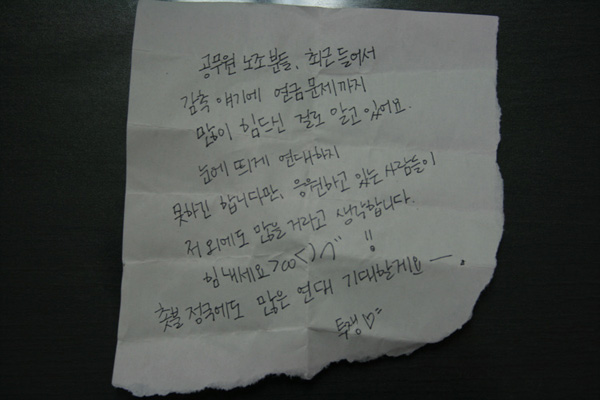 공무원 노조분들, 최근 들어서
감축 얘기에 연금문제까지
많이 힘드신 걸로 알고 있어요.
눈에 띄게 연대하지
못하긴 합니다만, 응원하고 있는 사람들이
저 외에도 많을거라고 생각합니다.
힘내세요>∞<)/" !!
촛불 정국에도 많은 연대 기대할게요 ー.
투쟁♡=